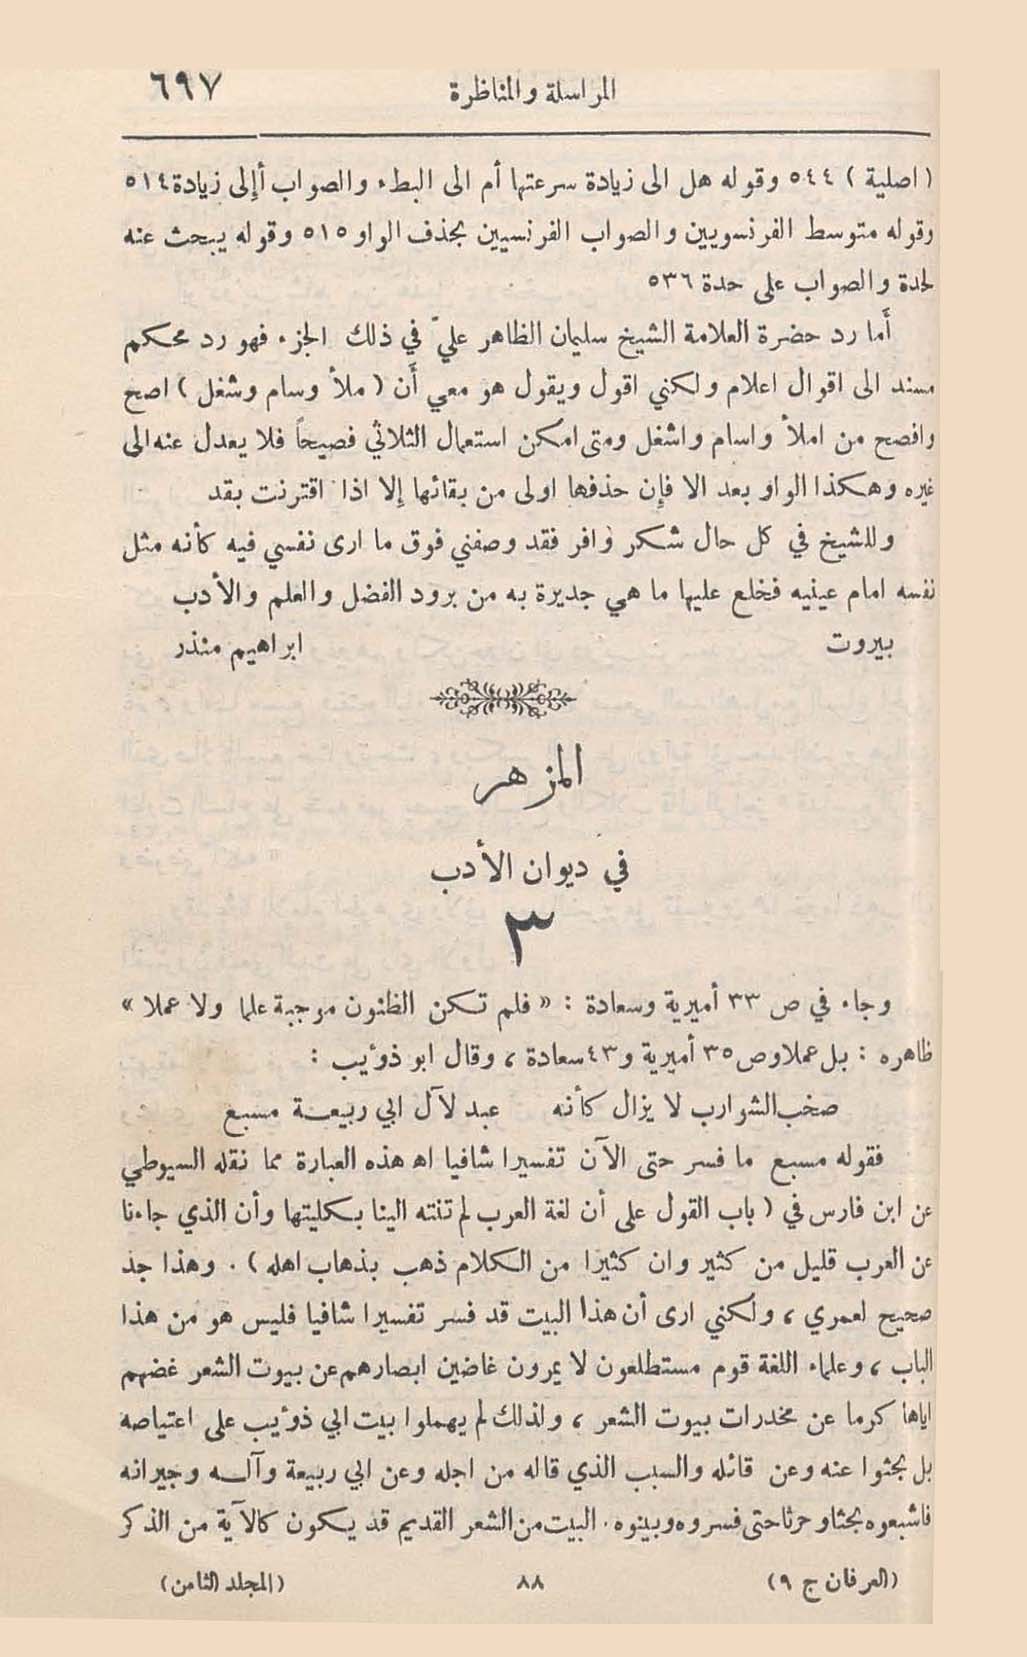 المراسلة والمناظرة ٦٩٧
(اصلية) ٥٤٤ وقوله هل الى زيادة سرعتها أم الى البطء والصواب أإلى زيادة ٥١٤
وقوله متوسط الفرنسويين والصواب الفرنسيين بحذف الواو ٥١٥ وقوله يبحث عنه
لحدة والصواب على حدة ٥٣٦
أما رد حضرة العلامة الشيخ سليمان الظاهر عليّ في ذلك الجزء فهو رد محكم
مسند الى اقوال اعلام ولكني اقول ويقول هو معي أن (ملأ وسام وشغل) اصح
وافصح من املأ واسام واشغل ومتى امكن استعمال الثلاثي فصيحاً فلا يعدل عنه الى
غيره وهكذا الواو بعد الا فإن حذفها اولى من بقائها إلا اذا اقترنت بقد
وللشيخ في كل حال شكر وافر فقد وصفني فوق ما ارى نفسي فيه كأنه مثل
نفسه امام عينيه فخلع عليها ما هي جديرة به من برود الفضل والعلم والأدب
بيروت ابراهيم منذر
المزهر
في ديوان الأدب
٣
وجاء في ص ٣٣ أميرية وسعادة : « فلم تكن الظنون موجبة علما ولا عملا »
ظاهره : بل عملا وص ٣٥ أميرية و٤٣ سعادة ، وقال ابو ذوئيب :
صخب الشوارب لا يزال كأنه عبد لآل ابي ربيعة مسبع
فقوله مسبع ما فسر حتى الآن تفسيرا شافيا اه هذه العبارة مما نقله السيوطي
عن ابن فارس في (باب القول على أن لغة العرب لم تنته الينا بكليتها وأن الذي جاءنا
عن العرب قليل من كثير وان كثيرا من الكلام ذهب بذهاب اهله) . وهذا جد
صحيح لعمري ، ولكني ارى أن هذا البيت قد فسر تفسيرا شافيا فليس هو من هذا
الباب ، وعلماء اللغة قوم مستطلعون لا يمرون غاضين ابصارهم عن بيوت الشعر غضهم
اياها كرما عن مخدرات بيوت الشعر ، ولذلك لم يهملوا بيت ابي ذوئيب على اعتياصه
بل بحثوا عنه وعن قائله والسبب الذي قاله من اجله وعن ابي ربيعة وآله وجيرانه
فاشبعوه بحثا وحرثا حتى فسروه وبينوه . البيت من الشعر القديم قد يكون كالآية من الذكر
(العرفان ج ٩) ٨٨ (المجلد الثامن)